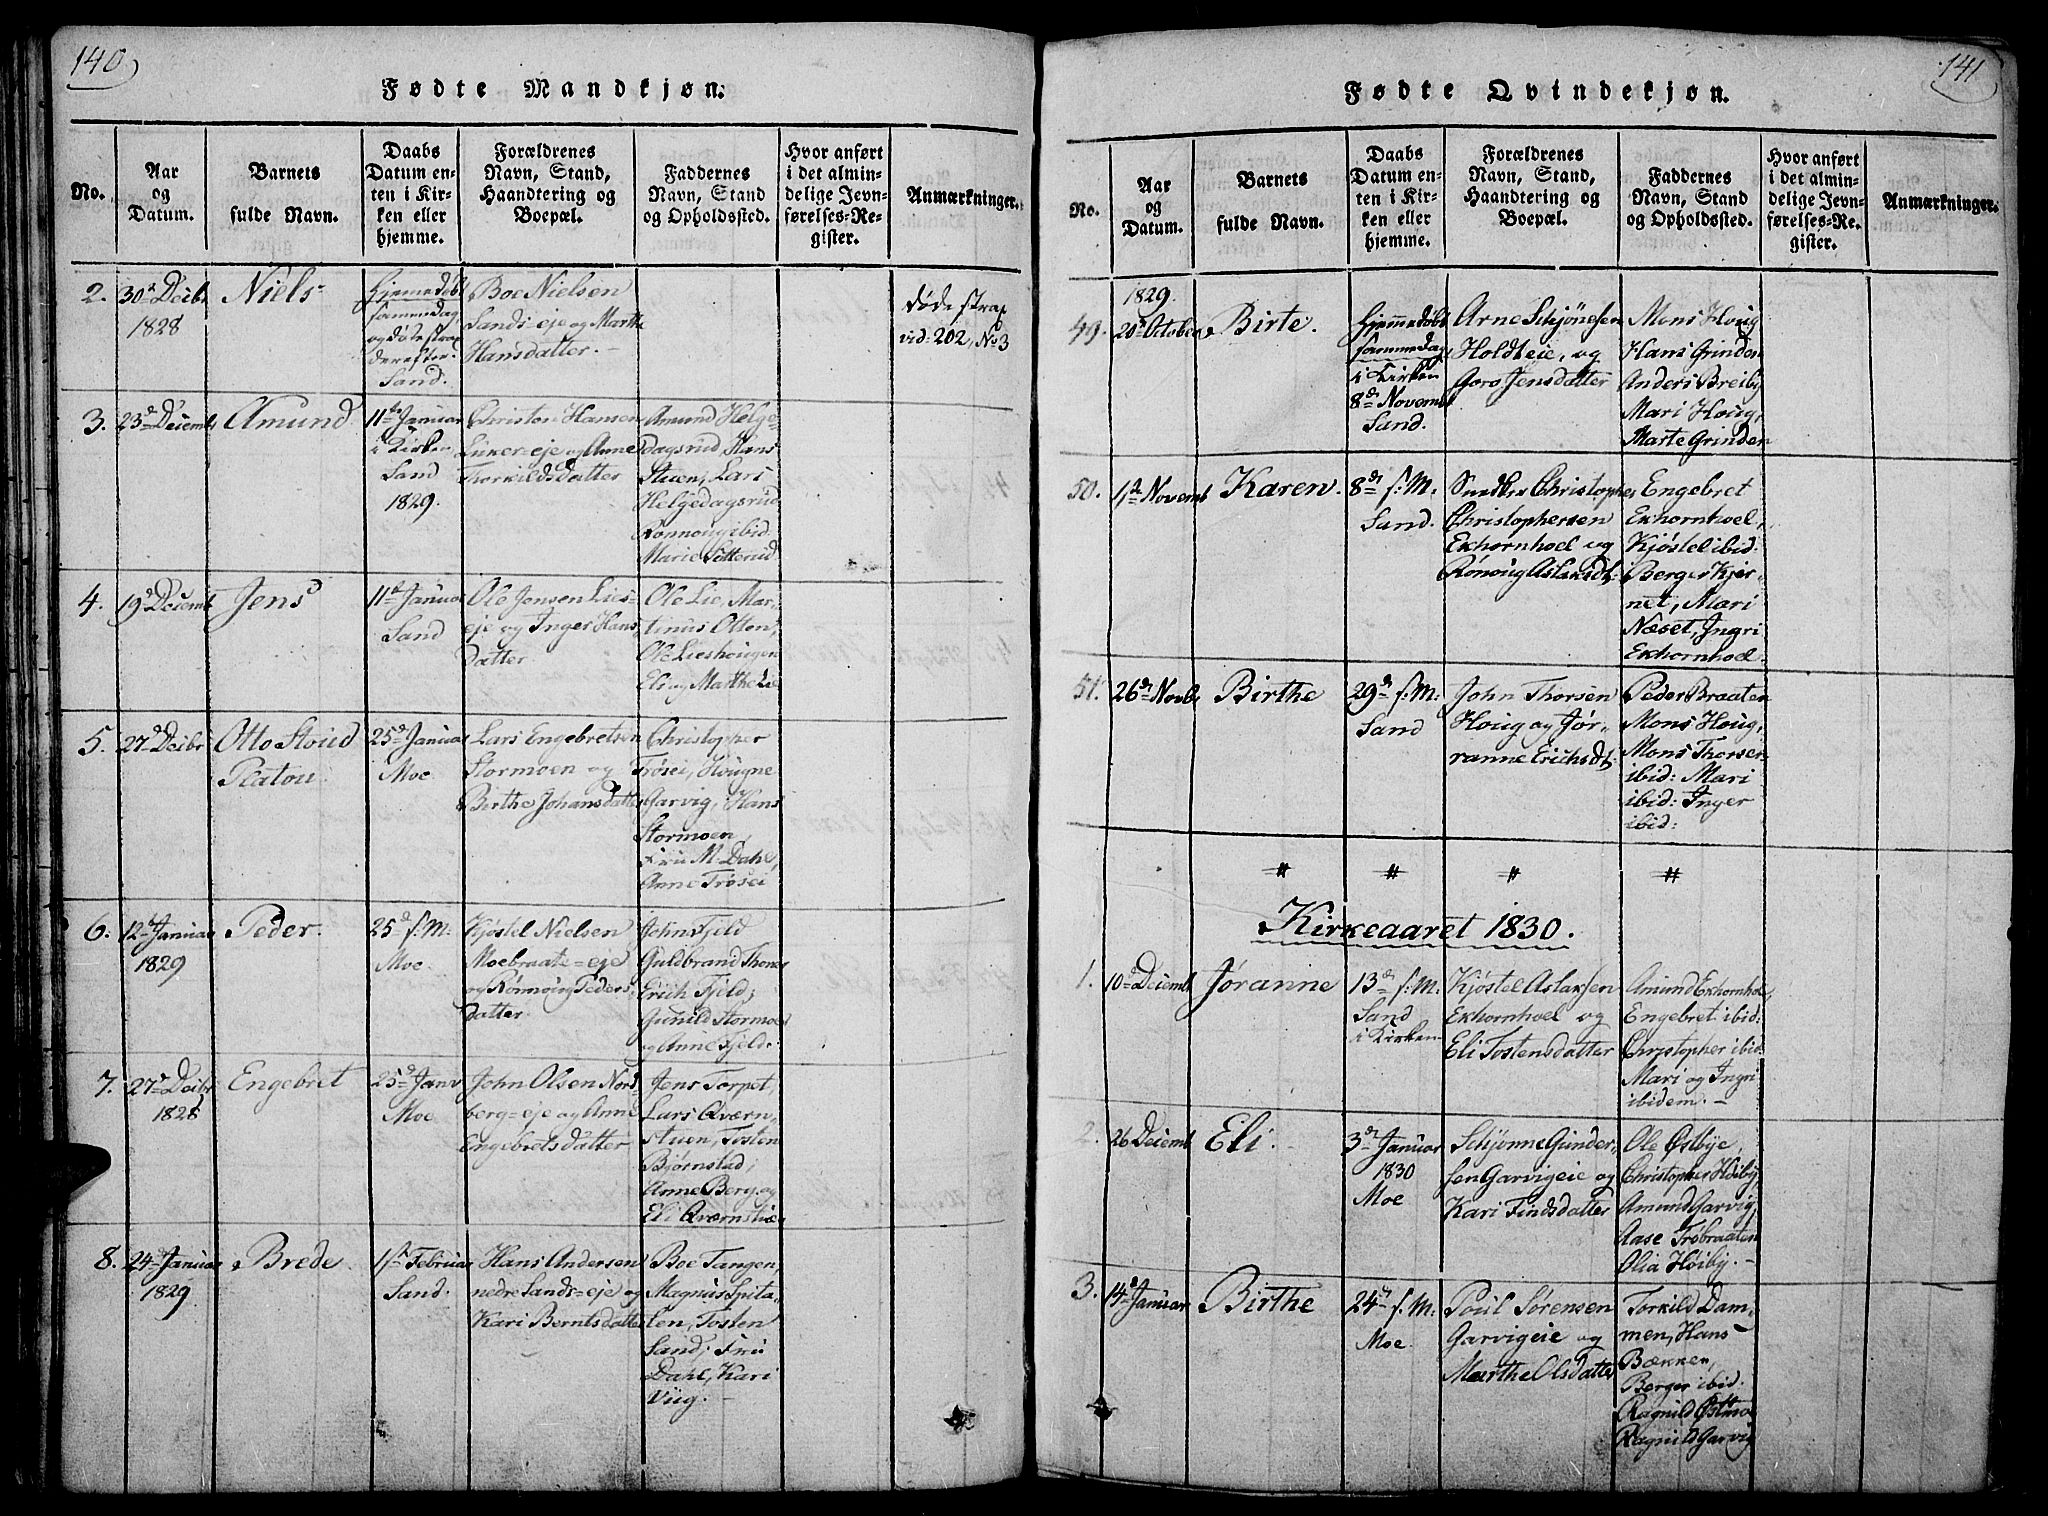 140
Fødte Mandkjøn.
No.
Aar
og
Datum.
Barnets
fulde Navn.
Daabs
Datum en-
ten i Kir-
ken eller
hjemme.
Forældrenes
Navn, Stand,
Haandtering og
Boepæl.
Faddernes
Navn, Stand
og Opholdssted.
Hvor anført
i det almin-
delige Jevn-
førelses-Re-
gister.
Anmærkninger.
2.
30te Decbr
1828
Niels
Hjemmedøbt
sammedag
og døde strax
derefter.
Sand.
Boe Nielsen
Sands-eje og Marthe
Hansdatter. -
døde strax
vid: 202, No 3
3.
23d Decemb
Amund
11te Januar
i Kirken
Sand
1829.
Christen Hansen
eje og Anne
Thorkildsdatter
Amund Helge-
Dagsrud, Hans
Stuen, Lars
Helgedagsrud
Ronnoug ibid.
Marie
4.
19d Decemb
Jens
11te Januar
Sand
Ole Jensen Lies-
eje og Inger Hans
datter
Ole Lie, Mar-
tinus Otton,
Ole Lieshougen
Eli og Marthe Lie
5.
27d Decbr
Otto Stoud
Platou
25d Januar
Moe
Lars Engebretsen
Stormoen og
Birthe Johansdatter
Christopher
Trøsei, Hougne
Garvig, Hans
Stormoen,
Frue M. Dahl,
Anne Trøsei
6.
12d Januar
1829
Peder.
25d s: M:
Moe
Kjøstel Nielsen
Moebraate=eje
og Rønnoug Peders
datter
John Fjeld
Guldbrand
Erich Fjeld;
Gunild Stormoe
og Anne Fjeld.
7.
27d Decbr
1828
Engebret
25d Janv
Moe
John Olsen Nord
berg=eje og Anne
Engebretsdatter
Jens Torpet,
Lars Qværn-
stuen, Tosten
Bjørnstad,
Anne Berg, og
Eli Qværnstue
8.
24d Januar
1829
Brede
1ste Februar
Sand.
Hans Andersen
nedre Sands=eje og
Kari Berntsdatter
Boe Tangen,
Magnus Spita-
len, Tosten
Sand, Frue
Dahl, Kari
Viig. -
141
Fødte Qvindekjøn.
No.
Aar
og
Datum.
Barnets
fulde Navn.
Daabs
Datum en-
ten i Kir-
ken eller
hjemme.
Forældrenes
Navn, Stand,
Haandtering og
Boepæl.
Faddernes
Navn, Stand
og Opholdssted.
Hvor anført
i det almin-
delige Jevn-
førelses-Re-
gister.
Anmærkninger.
49.
1829
20d October
Birte.
Hjemmedøbt
sammedag
i Kirken
8de Novemb
Sand.
Arne Schjönesen
Holdteie, og
Goro Jensdatter
Mons Houg
Hans Grinden
Anders Breiby
Mari Houg,
Marte Grinden
50.
1ste Novemb
Karen.
8de s: M.
Sand.
Christopher
Christophersen
Ekhornhoel og
Rönoug Aslaksdt:
Engebret
Ekhornhoel,
Kjöstel ibid:
Berger Kjer-
net, Mari
Næset, Ingri
Ekhornhoel.
51.
26de Novb
Birthe
29de s: M:
Sand
John Thorsen
Houg og Jør-
ranne Erichsdt:
Peder Braaten
Mons Houg,
Mons Thorsen
ibid: Mari
ibid: Inger
ibid:
Kirkeaaret 1830.
1.
10d Decemb
Jøranne
13de s: M:
Sand
i Kirken
Kjöstel Aslaksen
Ekhornhoel og
Eli Tostensdatter
Amund Ekhornhoe,
Engebret ibid:
Christopher ibid
Mari og Ingri
ibidem. -
2.
26 Decemb
Eli.
3de Januar
1830
Moe
Schjønne Gunder-
sen Garvigeie og
Kari Findsdatter
Ole Østbye,
Christopher Höiby,
Amund Garvig,
Aase Trøbraaten
Olia Høiby. -
3.
14d Januar
Birthe
24de s: M:
Moe.
Poul Sørensen
Garvigeie og
Marthe Olsdatter
Torkild Dam-
men, Hans
Bækken,
Berger ibid.
Ragnild Østmo
Ragnild Garvig